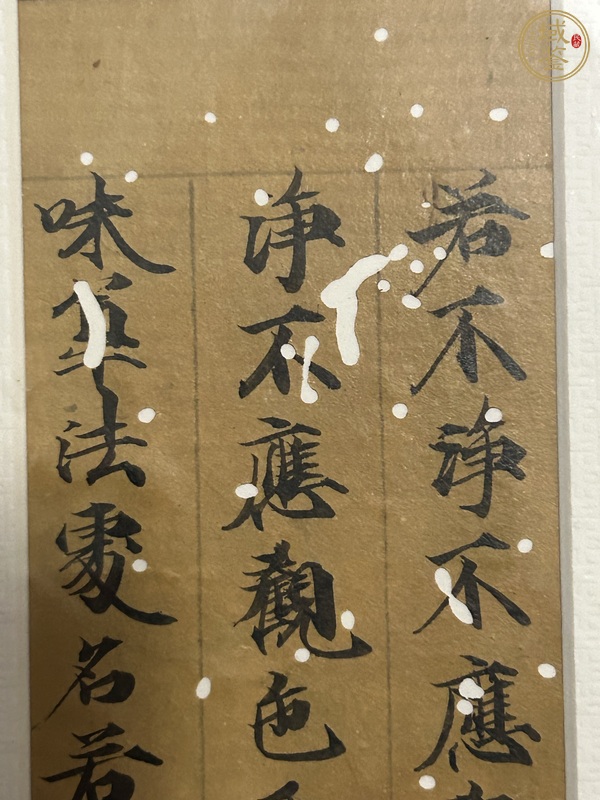 若不淨不應
淨不應觀色
味法處名若